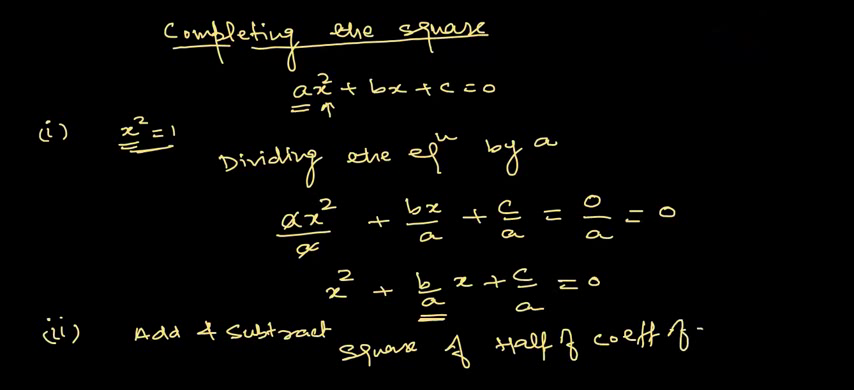 Completing the square
ax² + bx + c = 0
(i) x² = 1
Dividing the eqⁿ by a
ax²/a + bx/a + c/a = 0/a = 0
x² + b/a x + c/a = 0
(ii) Add & Subtract square of Half of coeff of